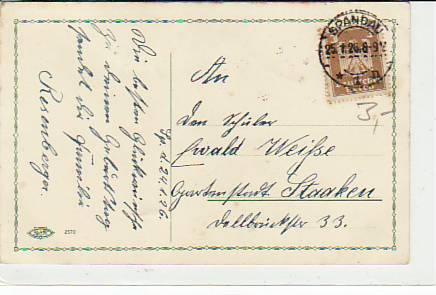 SPANDAU
25.1.26.8-9V
* 1 n
3,-
Sp. d. 24.1.26.
Die besten Glückwünsche
zu Deinem Geburtstag
sendet die Familie
Rosenberger.
An
den Schüler
Ewald Weiße
Gartenstadt Staaken
Delbrückstr 33.
2570